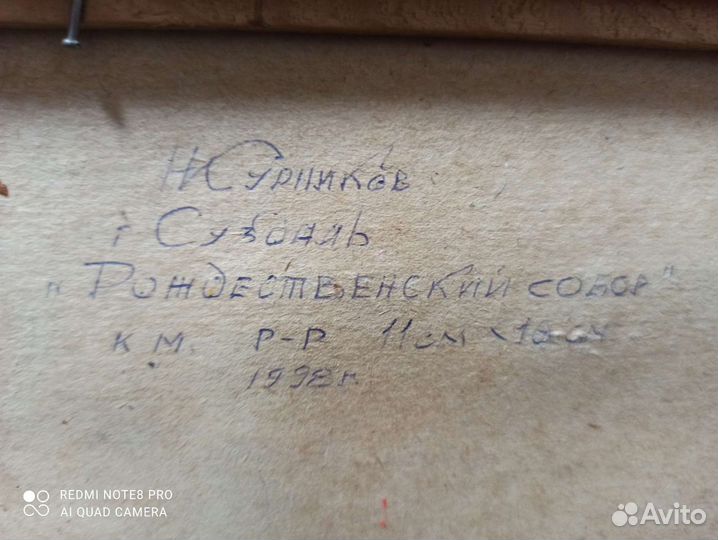 Н Сурников
г Суздаль
"Рождественский собор"
к м. Р-Р 11см х
1998 г.
REDMI NOTE8 PRO
AI QUAD CAMERA
Avito